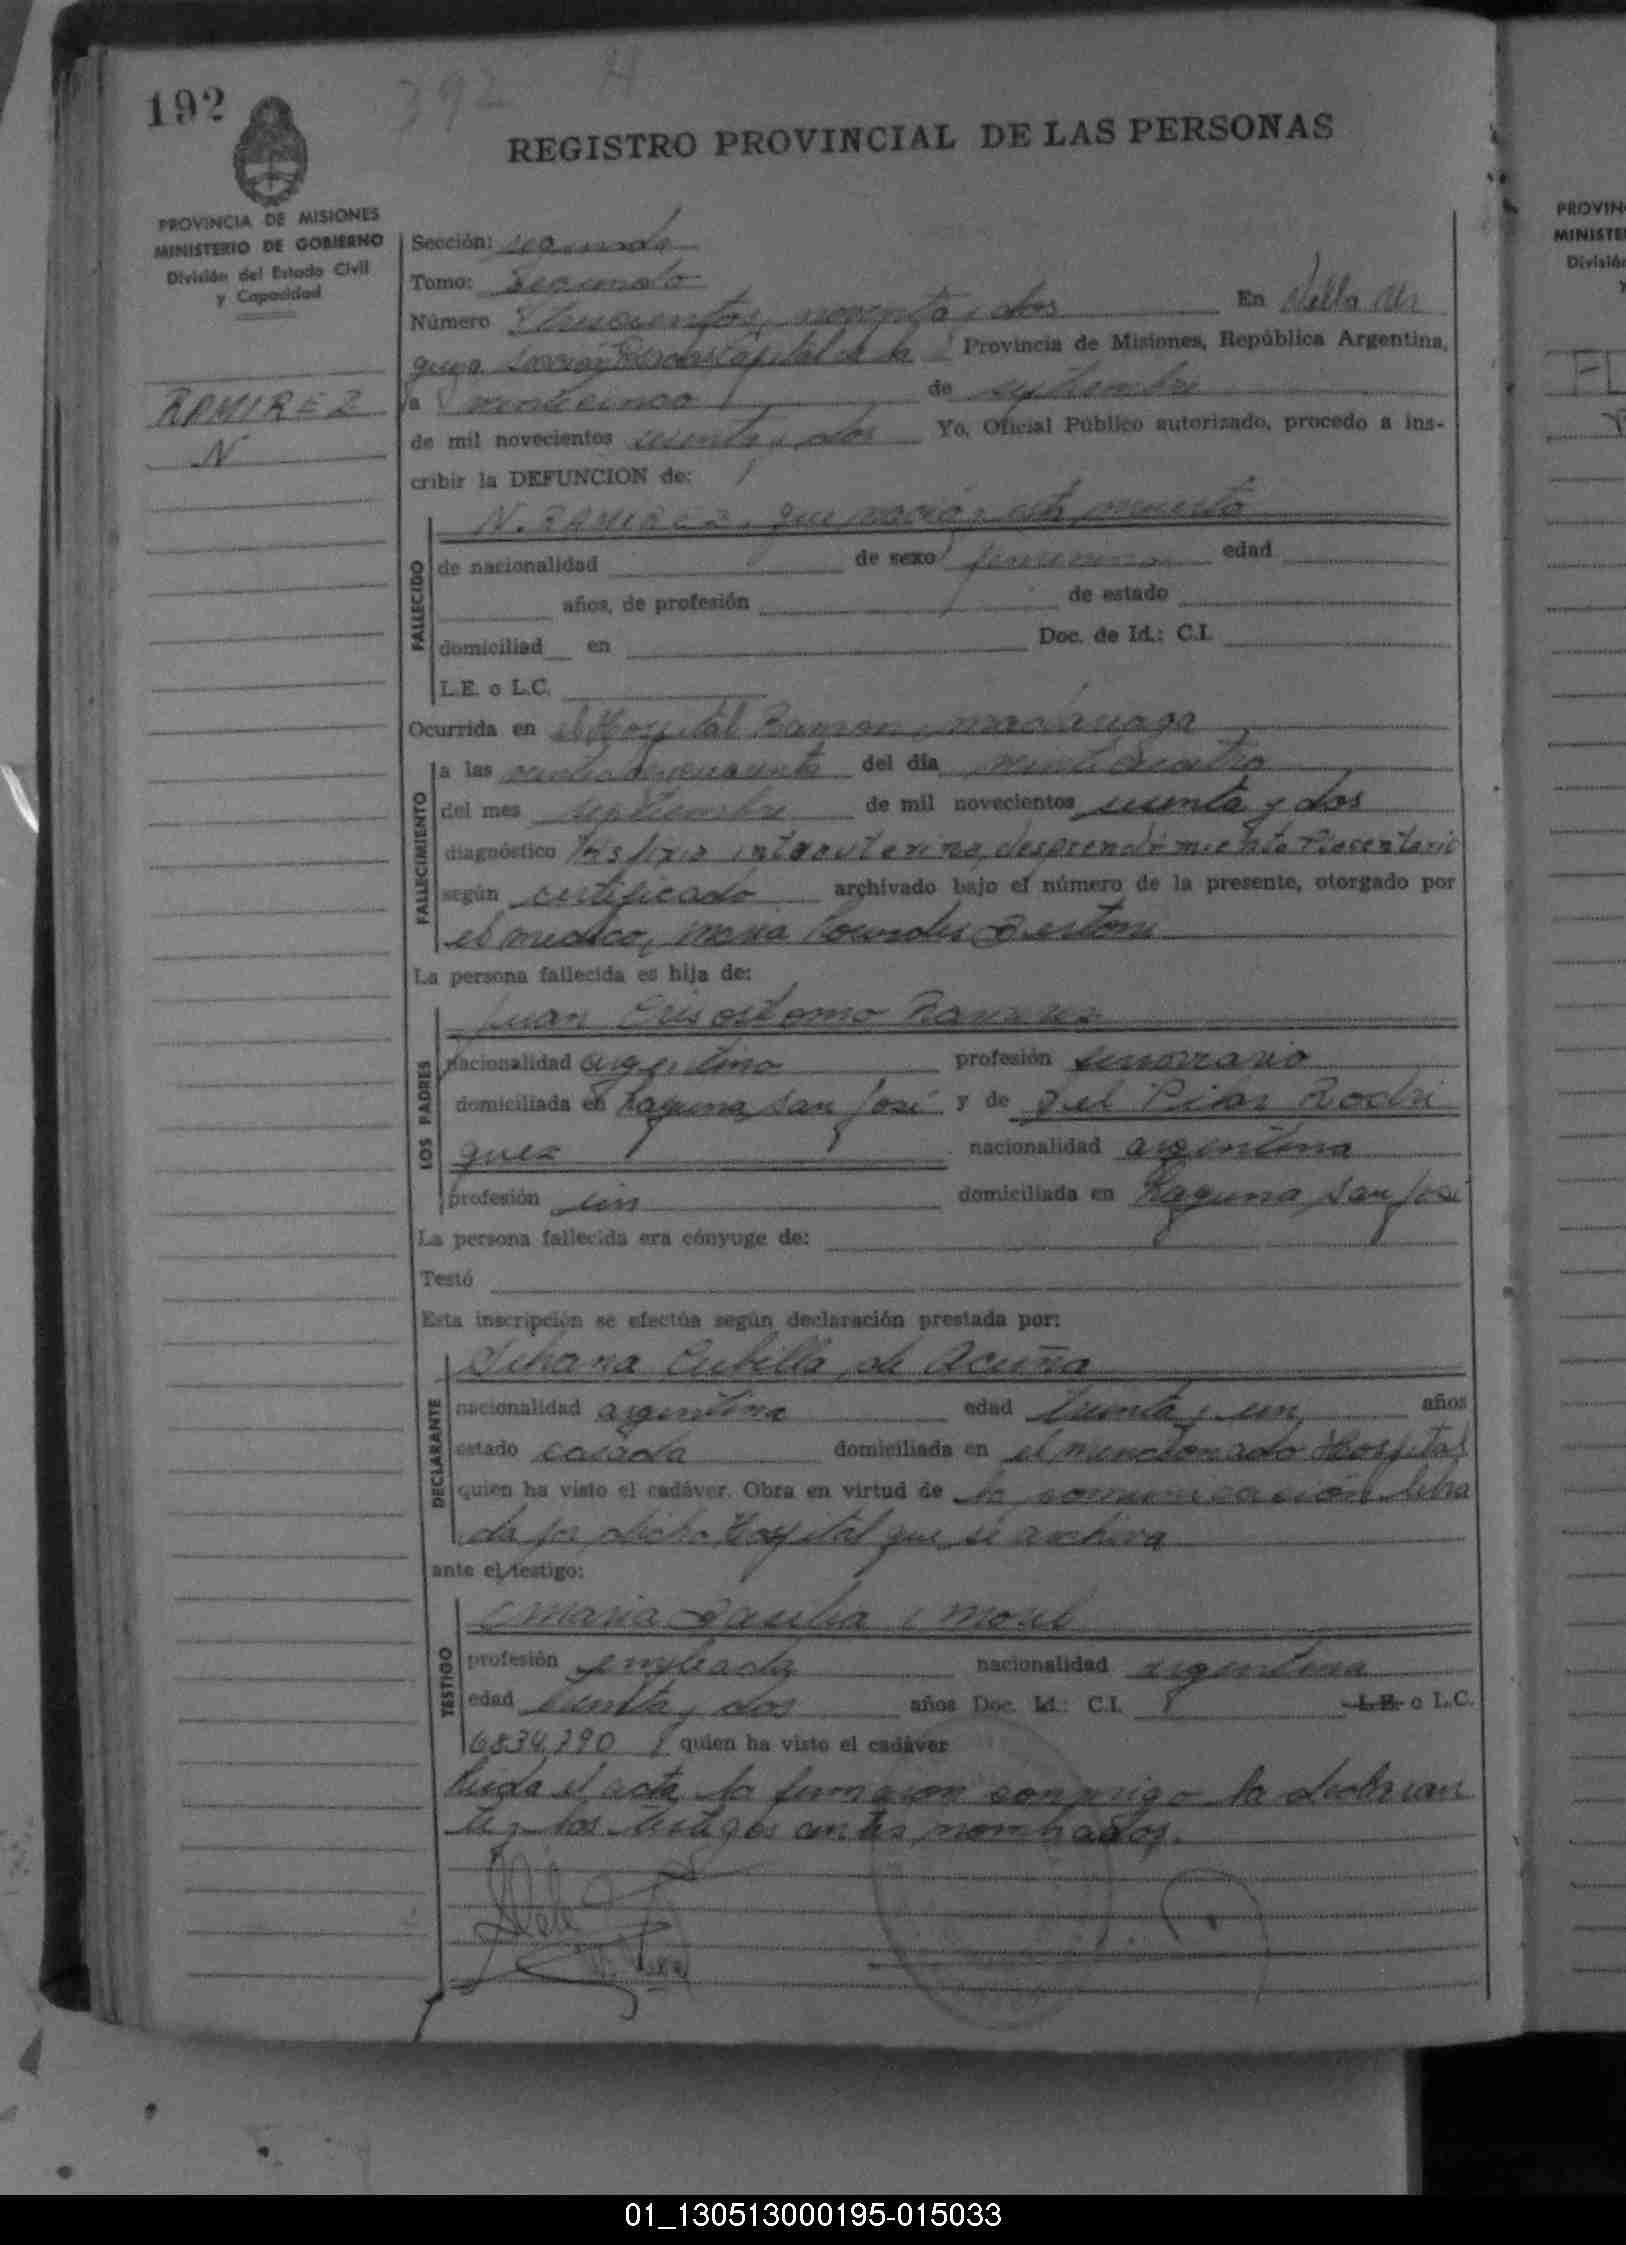 192
392 H
REGISTRO PROVINCIAL DE LAS PERSONAS
PROVINCIA DE MISIONES
MINISTERIO DE GOBIERNO
División del Estado Civil
y Capacidad
RAMIREZ
N
Sección: segunda
Tomo: Segundo
Número Trescientos noventa y dos En Villa Ur
quiza Sección Capital de la Provincia de Misiones, República Argentina,
a veinticinco de septiembre
de mil novecientos sesenta y dos Yo, Oficial Público autorizado, procedo a ins-
cribir la DEFUNCION de:
N. RAMIREZ, que nació muerta
FALLECIDO
de nacionalidad de sexo femenino edad
años, de profesión de estado
domiciliad en Doc. de Id.: C.I.
L.E. o L.C.
Ocurrida en el Hospital Ramon Madariaga
FALLECIMIENTO
a las veinte cincuenta del día veinticuatro
del mes septiembre de mil novecientos sesenta y dos
diagnóstico Asfixia intrauterina, desprendimiento Placentario
según certificado archivado bajo el número de la presente, otorgado por
el medico, Maria Lourdes Bertoni
La persona fallecida es hija de:
LOS PADRES
Juan Crisostomo Ramirez
nacionalidad argentino profesión
domiciliada en Laguna San José y de Del Pilar Rodri
guez nacionalidad argentina
profesión sin domiciliada en Laguna San José
La persona fallecida era cónyuge de:
Testó
Esta inscripción se efectúa según declaración prestada por:
DECLARANTE
Cubilla de Acuña
nacionalidad argentina edad treinta y un años
estado casada domiciliada en el mencionado Hospital
quien ha visto el cadáver. Obra en virtud de la comunicación libra
da por dicho Hospital que se archiva
ante el testigo:
TESTIGO
Maria Basilia Morel
profesión empleada nacionalidad argentina
edad treinta y dos años Doc. Id.: C.I. L.E. o L.C.
6.834.790 quien ha visto el cadáver
Leida el acta la firmaron conmigo la declaran
te y los testigos antes nombrados.
PROVIN
MINISTE
División
01_130513000195-015033